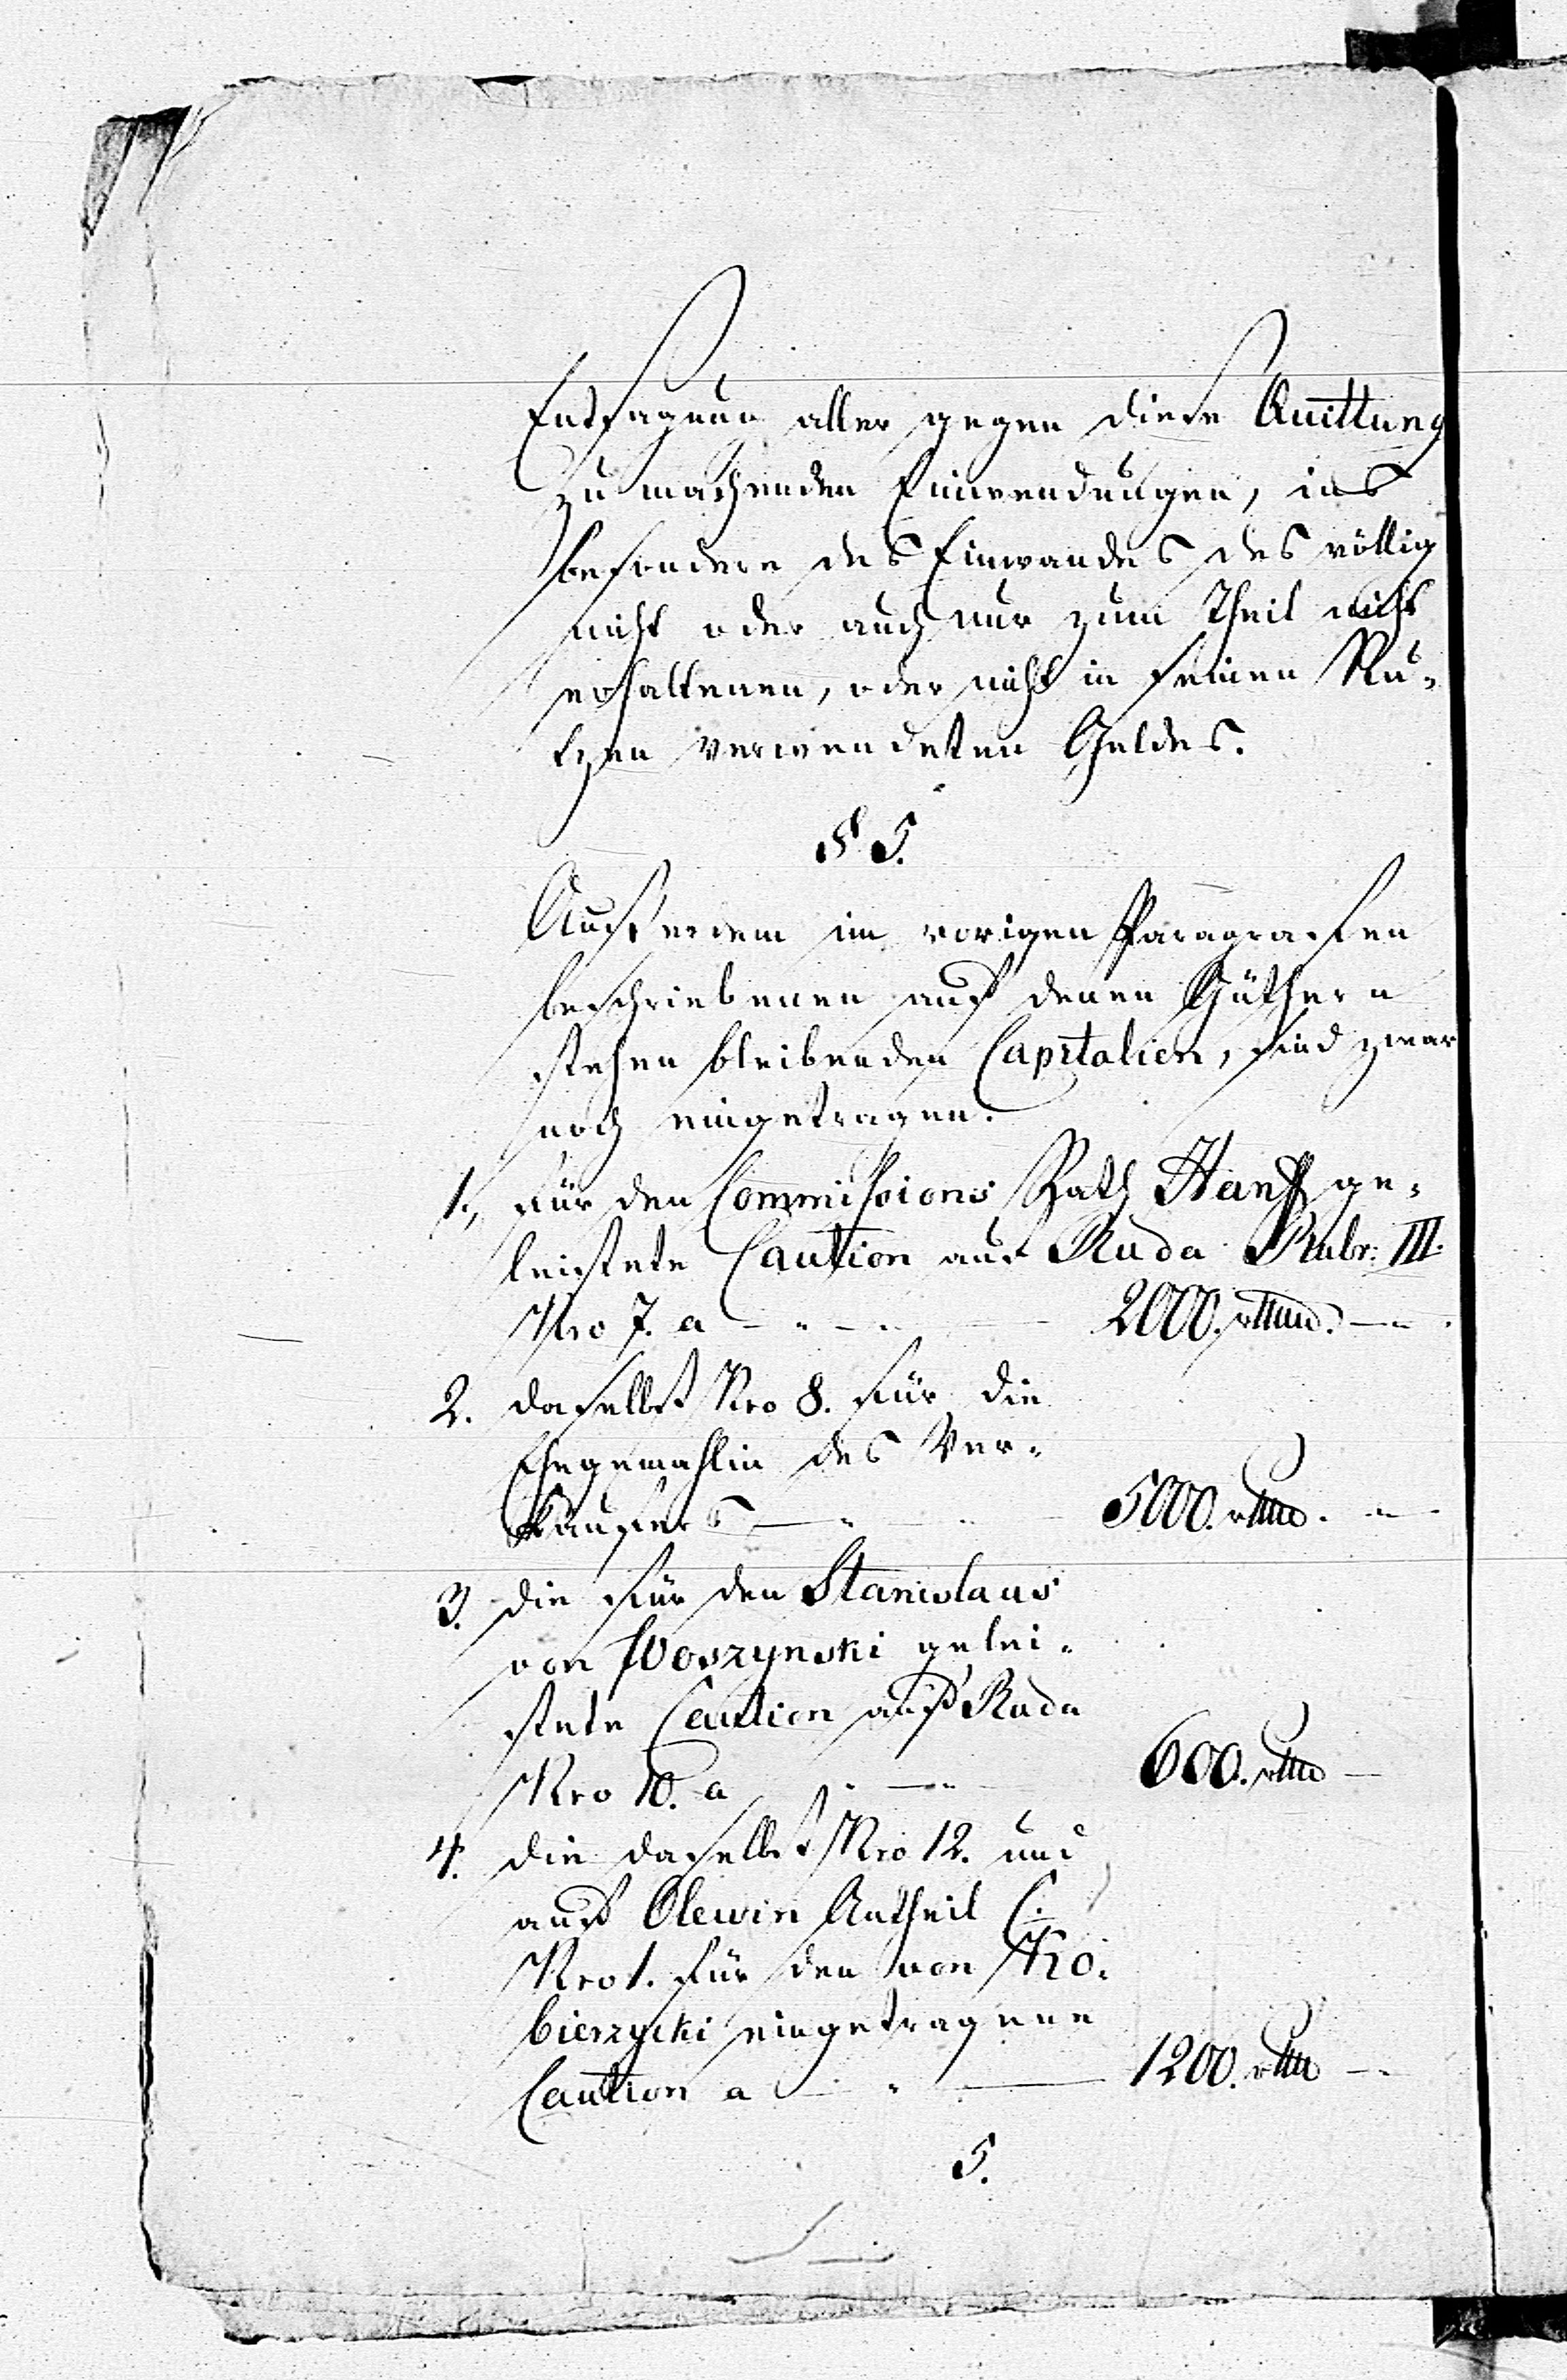 Entsagung aller gegen diese Quittung
zu machenden Einwendungen, ins
besondere des Einwandes des völlig
nicht oder auch nur zum Theil nicht
erhaltenen, oder nicht in seinen Nu-
tzen verwendeten Geldes.
§ 5.
Ausserdem im vorigen Paragrafen
beschriebenen auf denen Güthern
stehen bleibenden Capitalien, sind zwar
noch eingetragen.
1., für den Commissions Rath Hanff ge-
leistete Caution auf Ruda Rubr: III.
Nro 7. a - - - 2000. rthlr. -
2. daselbst Nro 8. für die
Ehegemahlin des Ver-
käufers - - - 5000. rthlr. -
3. die für den Stanislaus
von Woszynski gelei-
stete Caution auf Ruda
Nro 10. a - - 600. rthlr -
4. die daselbst Nro 12. und
auf Olewin Antheil C.
Nro 1. für den von Ko-
bierzycki eingetragene
Caution a - - 1200. rthlr -
5.